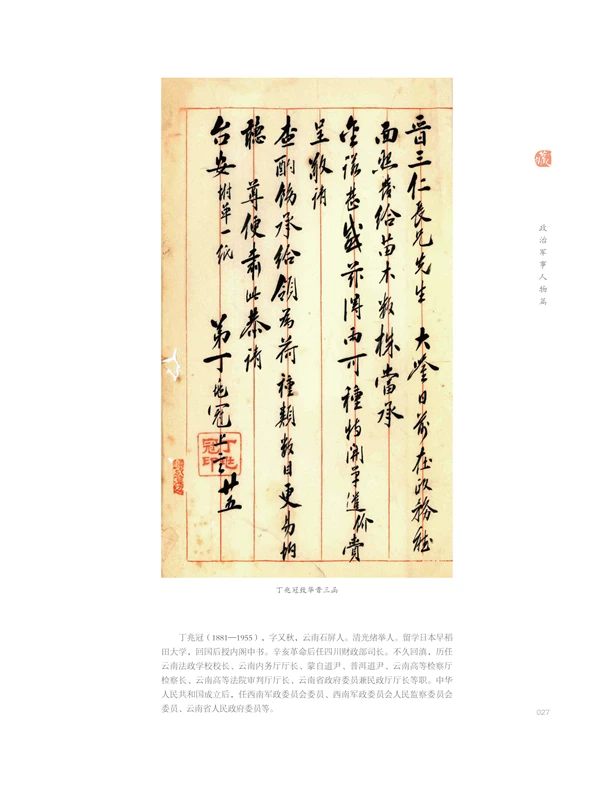 晋三仁长兄先生 大鉴日前在政务厅
面恳发给苗木数株当承
金诺甚感兹得雨可种特开单遣价赍
呈敬请
查酌饬承给领为荷种类数目更易均
听 尊便肃此恭请
台安附单一纸
弟丁兆冠上言廿五
丁兆冠印
政治军事人物篇
丁兆冠致华晋三函
丁兆冠（1881—1955），字又秋，云南石屏人。清光绪举人。留学日本早稻
田大学，回国后授内阁中书。辛亥革命后任四川财政部司长。不久回滇，历任
云南法政学校校长、云南内务厅厅长、蒙自道尹、普洱道尹、云南高等检察厅
检察长、云南高等法院审判厅厅长、云南省政府委员兼民政厅厅长等职。中华
人民共和国成立后，任西南军政委员会委员、西南军政委员会人民监察委员会
委员、云南省人民政府委员等。
027